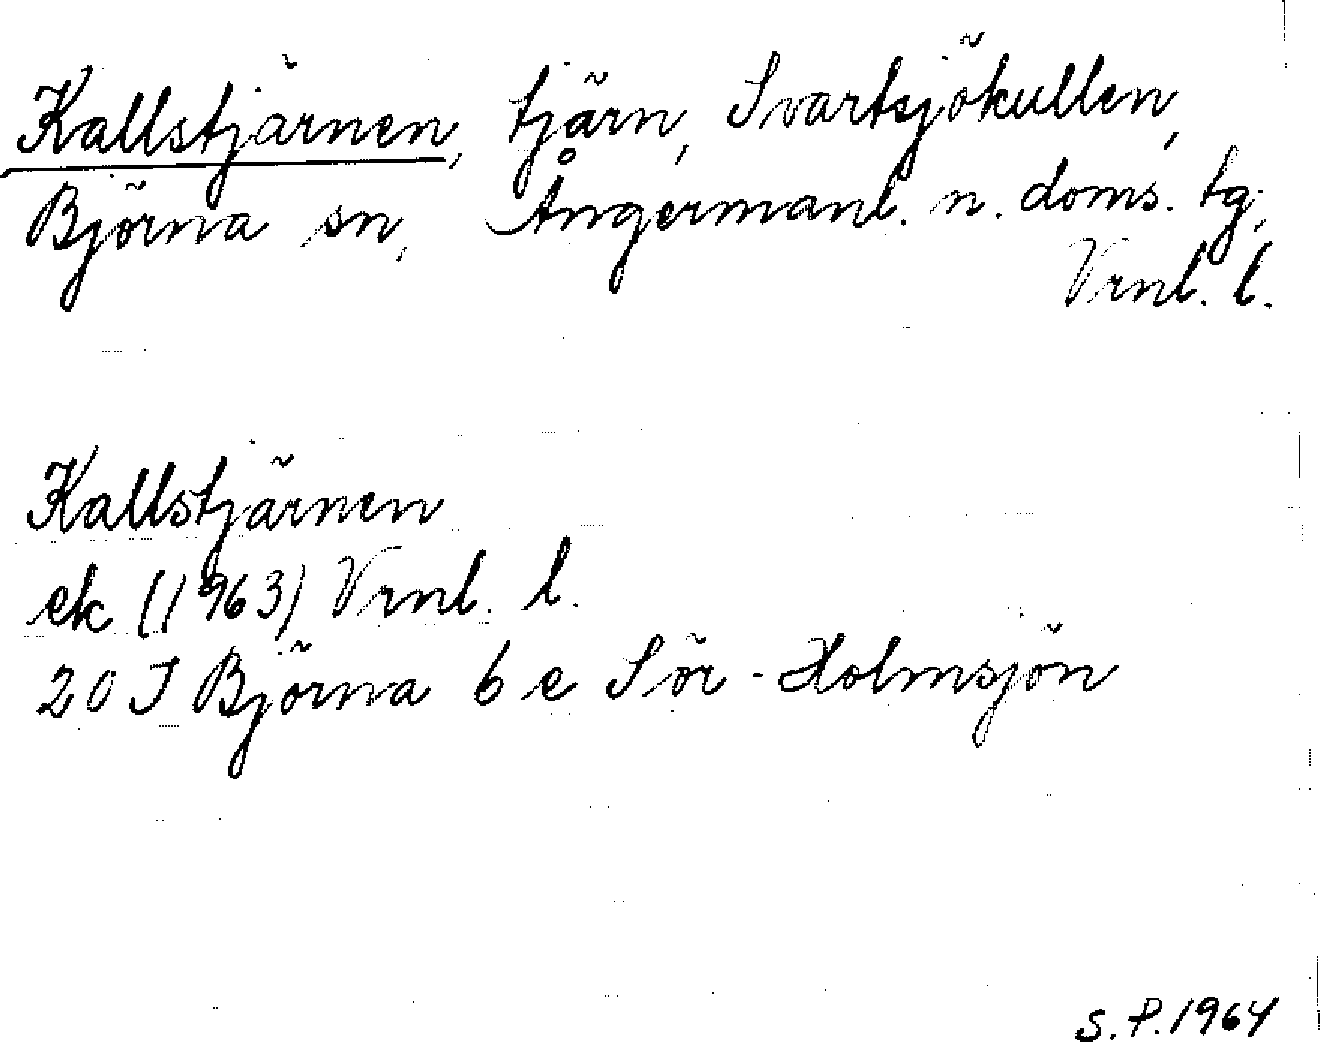 Kallstjärnen, tjärn, Svartsjökullen,
Björna sn, Ångermanl. n. doms. tg,
Vrnl. l.
Kallstjärnen
ek (1963) Vrnl. l.
20 J Björna 6 e Sör-Holmsjön
S.P. 1964